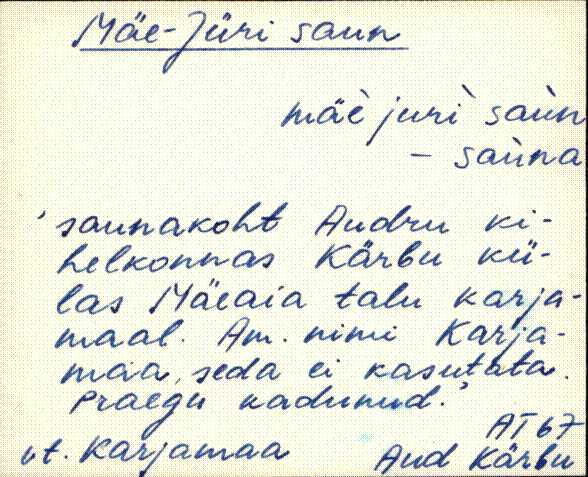 Mäe-Jüri saun
mäè jurì saùn
- saùna
'saunakoht Audru ki-
helkonnas Kärbu kü-
las Mäeaia talu karja-
maal. Am. nimi Karja-
maa, seda ei kasutata.
Praegu kadunud.'
AT 67
vt. Karjamaa Aud Kärbu